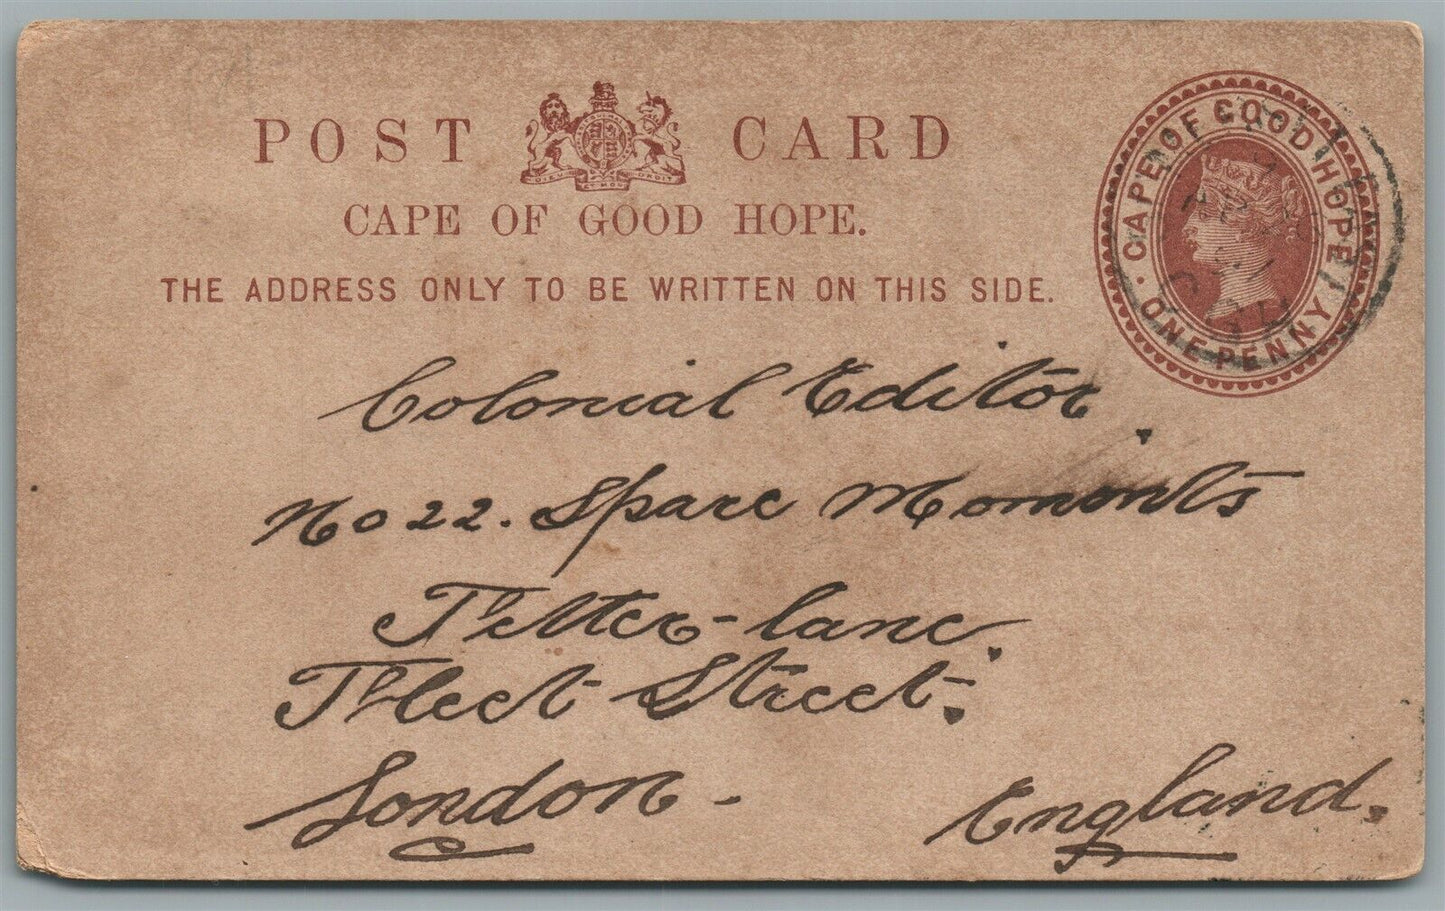 POST CARD
CAPE OF GOOD HOPE.
THE ADDRESS ONLY TO BE WRITTEN ON THIS SIDE.
CAPE OF GOOD HOPE
ONE PENNY
Colonial Editor.
No 22. Spare Moments
Fetter-lane.
Fleet Street.
London - England.